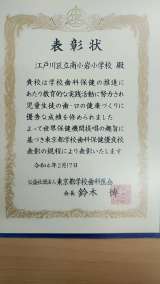 表彰状
江戸川区立南小岩小学校 殿
貴校は学校歯科保健の推進に
あたり教育的な実践活動に努力され
児童生徒の歯・口の健康づくりに
優秀な成績を修められました
よって世界保健機関提唱の趣旨に
基づき東京都学校歯科保健優良校
表彰の規程により表彰いたします
令和6年2月17日
公益社団法人 東京都学校歯科医会
会長 鈴木 博